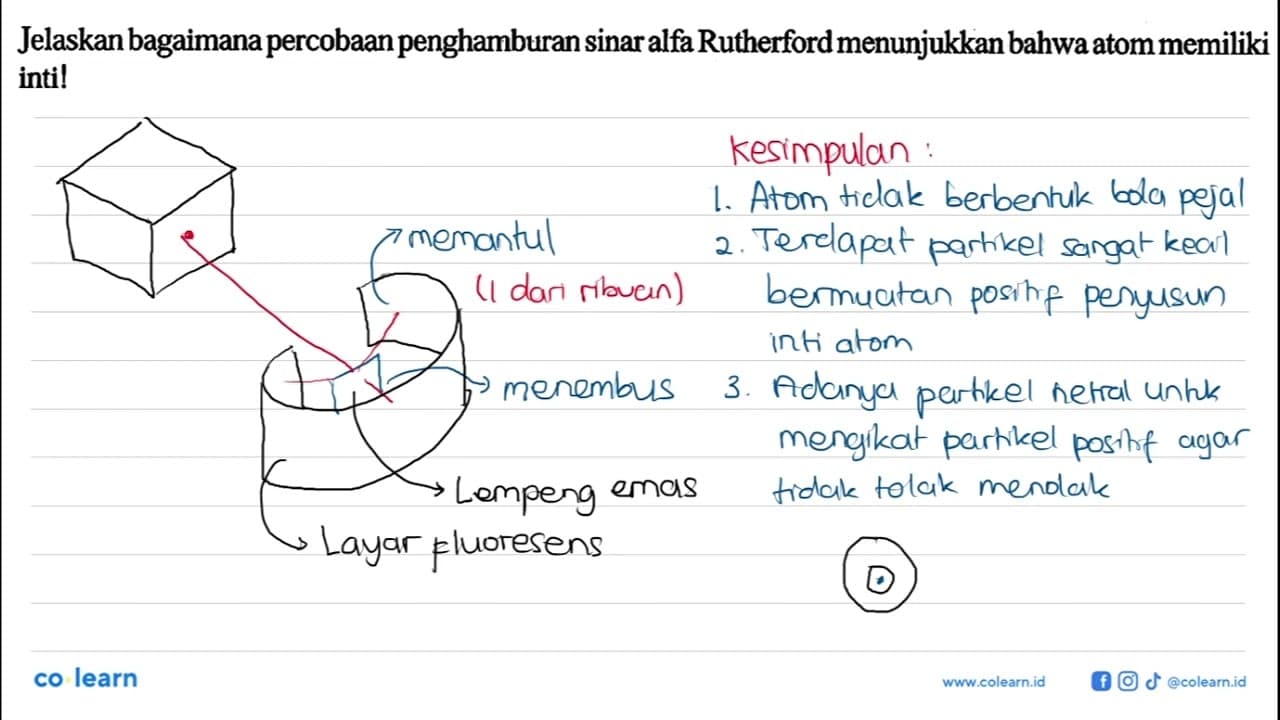 Jelaskan bagaimana percobaan penghamburan sinar alfa Rutherford menunjukkan bahwa atom memiliki
inti!
kesimpulan :
1. Atom tidak berbentuk bola pejal
2. Terdapat partikel sangat kecil
bermuatan positif penyusun
inti atom
3. Adanya partikel netral untuk
mengikat partikel positif agar
tidak tolak menolak
memantul
(1 dari ribuan)
menembus
Lempeng emas
Layar fluoresens
co learn
www.colearn.id
@colearn.id